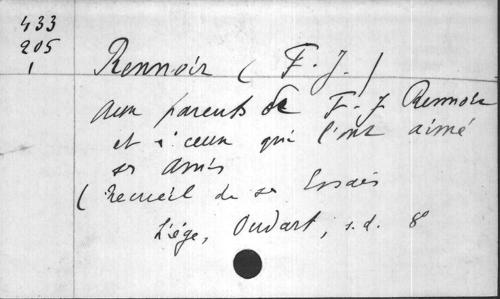 433
205
1
Rennoir (F. J.)
Aux parents de F. J. Rennoir
et à ceux qui l'ont aimé
ses amis
(Recueil de ses Essais
Liége, Oudart, s.d. 8°